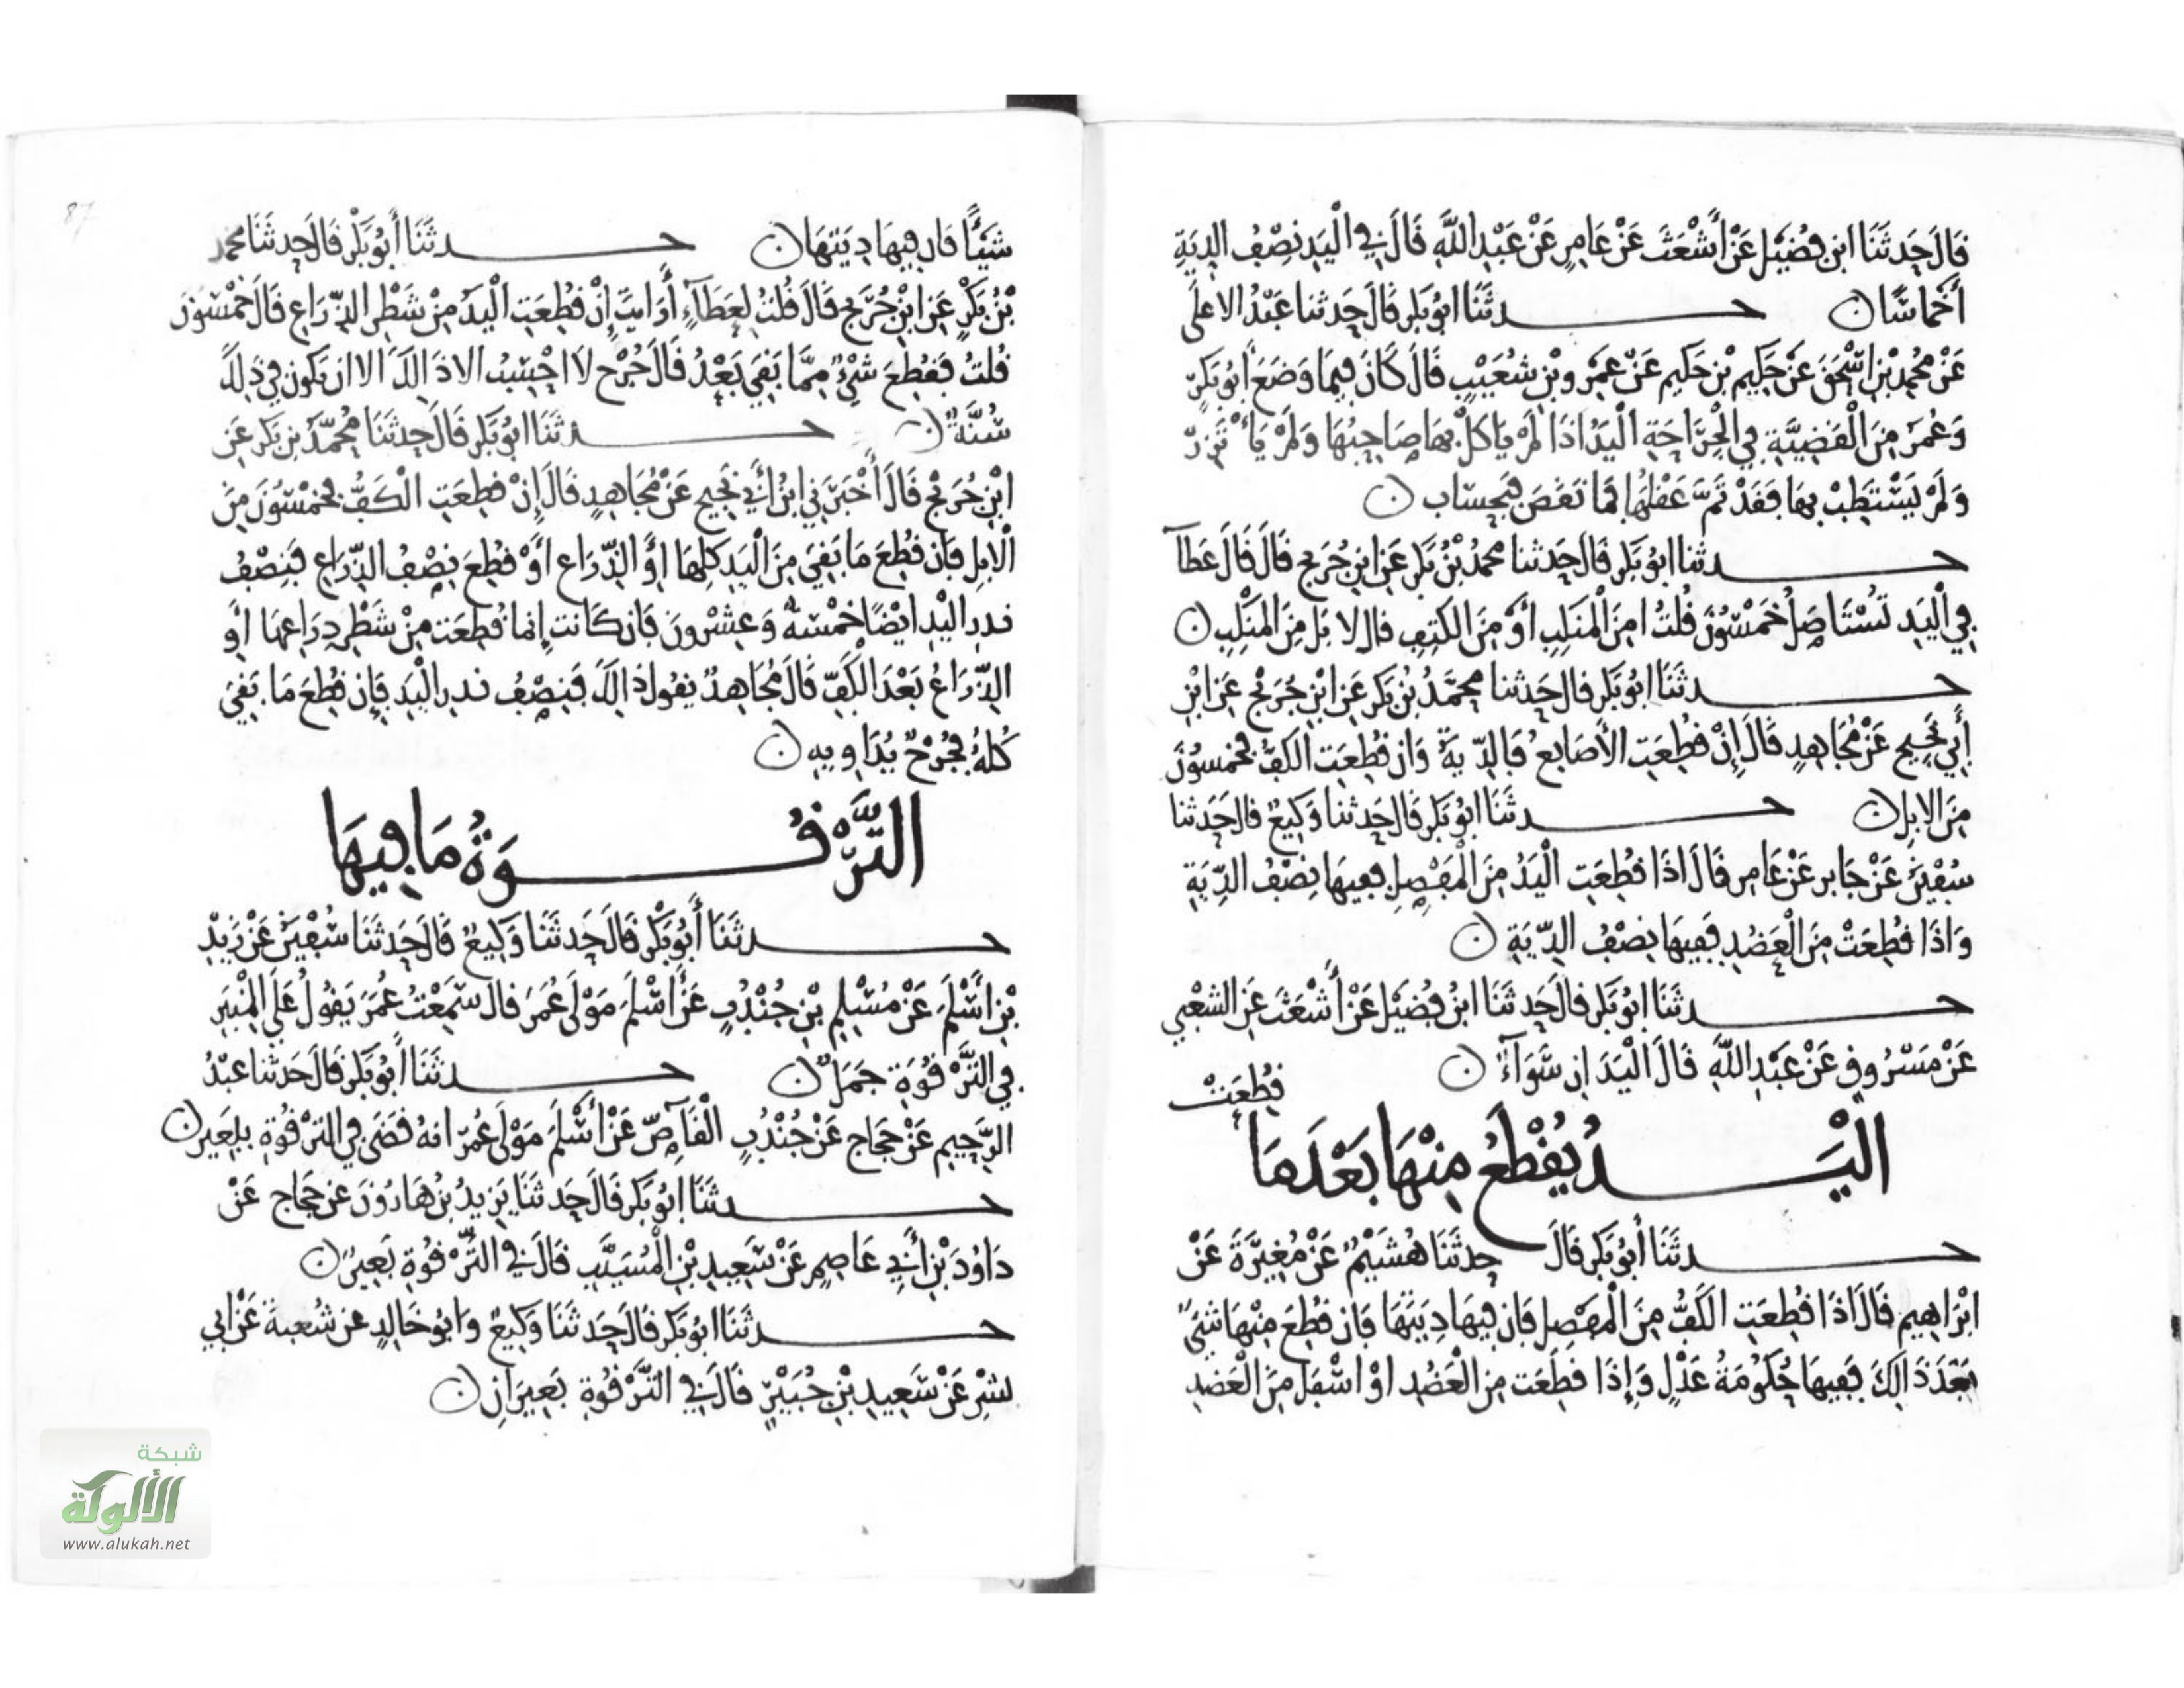 قَالَ حَدثَنَا ابن فُضَيْل عَنْ أَشْعَثَ عَنْ عَامِرٍ عَنْ عَبْدِ اللَّهِ قَالَ فِي الْيَدِ نِصْفُ الدِيَةِ
أَخْمَاسًا حدثَنَا ابُو بَكر قَالَ حَدثنا عَبْدُ الاعلَى
عَنْ مُحمدِ بْنِ اسْحٰقَ عَنْ حَكِيم بْنِ حَكِيم عَنْ عَمْرِو بْنِ شُعَيْبٍ قَالَ كَانَ فِيمَا وَضَعَ أَبُو بَكرٍ
وَعُمَرَ مِنَ الْقَضِيَّةِ فِي الْجِرَاحَةِ الْيَدُ اذَا لَمْ يَاكُلْ بهَا صَاحِبُهَا وَلَمْ يَأْتَزِرْ
وَلَمْ يَسْتَطِبْ بِهَا فَقَدْ تَمَّ عَقْلُهَا فَمَا نَقَصَ فَبِحِسَاب
حدثنا ابُو بَكر قَال حَدثنا محمدُ بْنُ بَكر عَنِ ابنِ جُرَيج قَالَ قَالَ عَطَآ
فِي الْيَدِ تُسْتَاصَلُ خَمْسُونَ قُلْتُ امِنَ الْمَنكِبِ أَوْ مِنَ الكَتِفِ قال لا بَل مِنَ المَنْكِبِ
حدثَنَا ابُو بَكر قال حَدثنا محمَّدُ بْنُ بَكر عَنِ ابْنِ جُرَيْج عَنِ ابْنِ
أَبِي نَجِيحٍ عَنْ مُجَاهِدٍ قَالَ إِنْ قُطِعَتِ الأَصَابِعُ فَالدِّيَةُ وَان قُطِعَتِ الكَفُّ فخَمسُونَ
مِنَ الابِلِ حدثَنَا ابُو بَكر قَالَ حَدثنا وَكِيعٌ قال حَدثنا
سُفْيَنُ عَنْ جَابر عَنْ عَامِر قَالَ اذَا قُطِعَتِ الْيَدُ مِنَ الْمَفْصِلِ فَفِيهَا نِصْفُ الدِّيَةِ
وَاذَا قُطِعَتْ مِنَ الْعَضُدِ فَفِيهَا نِصْفُ الدِّيَةِ
حدثَنَا ابُو بَكر قالَ حَدثَنَا ابنُ فُضَيْل عَنْ أَشْعَثَ عَنِ الشعْبي
عَنْ مَسْرُوقٍ عَنْ عَبْدِ اللَّهِ قَالَ الْيَدَانِ سَوَآءٌ
قُطِعَتْ
الْيَـــدُ يُقْطَعُ مِنْهَا بَعْدَ مَا
حدثَنَا أَبُو بَكر قَالَ حدثَنَا هُشَيْمٌ عَنْ مُغِيرَةَ عَنْ
ابْرَاهِيم قَالَ اذَا قُطِعَتِ الكَفُّ مِنَ الْمَفْصِلِ فَانَ فِيهَا دِيَتَهَا فَانْ قُطِعَ مِنْهَا شَيْءٌ
بَعْدَ ذَالِكَ فَفِيهَا حُكُومَةُ عَدْلٍ وَإِذَا قُطِعَت مِنَ الْعَضُدِ اوْ اسْفَلَ مِنَ الْعَضُدِ
شَيْئًا فَان فِيهَا دِيَتَهَا حدثَنَا أَبُو بَكْر قَالَ حدثَنَا محمد
بْنُ بَكْرٍ عَنِ ابْنِ جُرَيج قَالَ قُلْتُ لِعَطَآءٍ أَرَايتَ إِنْ قُطِعَتِ الْيَدُ مِنْ شَطْرِ الذِّرَاعِ قَالَ خَمْسُونَ
قُلْتُ فَقُطِعَ شَيْءٌ مِمَّا بَقِيَ بَعْدُ قَالَ جُرْح لَا احْسِبُ الا ذَالِكَ الا ان يَكون فِي ذَلِكَ
سُنَّةٌ حدثَنَا ابُو بَكر قَالَ حَدثَنَا مُحمَّدُ بن بَكر عَنِ
ابْنِ جُرَيْج قَالَ أَخْبَرَنِي ابْنُ أَبِي نَجِيح عَنْ مُجَاهِدٍ قَالَ إِنْ قُطِعَتِ الْكَفُّ فخَمْسُونَ مِنَ
الْابِلِ فَان قُطِعَ مَا بَقِيَ مِنَ الْيَدِ كلِّهَا أَوِ الذِّرَاعِ أَوْ قُطِعَ نِصْفُ الذِّرَاعِ فَنِصْفُ
نذرِ الْيَدِ ايْضًا خَمْسَةٌ وَعِشْرونَ فَان كَانَت إِنما قُطِعَت مِنْ شَطْرِ ذِرَاعهَا أَو
الذِّرَاعُ بَعْدَ الْكَفِّ قَالَ مُجَاهِدٌ يَقُول ذَالِكَ فَنِصْفُ نذرِ الْيَدِ فَإِن قُطِعَ مَا بَقِيَ
كُلُّهُ فَجُرْحٌ يُدَاوِيهِ
التَّرْقُـــوَةُ مَا فِيهَا
حدثَنَا أَبُو بَكْر قَالَ حَدثَنَا وَكِيعٌ قَالَ حَدثَنَا سُفْيَنُ عَنْ زَيْدِ
بْنِ أَسْلَمَ عَنْ مُسْلِمِ بْنِ جُنْدُبٍ عَنْ أَسْلَمَ مَوْلَى عُمَرَ قَالَ سَمِعْتُ عُمَرَ يَقُولُ عَلَى الْمِنْبَرِ
فِي التَّرْقُوَةِ جَمَلٌ حدثَنَا أَبُو بَكر قَالَ حَدثنا عَبْدُ
الرَّحِيمِ عَنْ حَجَاج عَنْ جُنْدُبٍ الْقَآصِّ عَنْ أَسْلَمَ مَوْلَى عُمَرَ انهُ قَضَى فِي التَرْقُوَةِ بِبَعَيرٍ
حدثَنَا ابُو بَكر قَالَ حَدثَنَا يَزِيدُ بْنُ هَارُونَ عَن حَجَاج عَنْ
دَاوُدَ بْنِ أَبِي عَاصِمٍ عَنْ سَعِيدِ بْنِ الْمُسَيَّبِ قَالَ فِي التَّرْقُوَةِ بَعِيرٌ
حدثَنَا ابُو بَكر قَالَ حَدثَنَا وَكِيعٌ وَابُو خَالِدٍ عن شُعبةَ عَنْ ابي
بِشْرٍ عَنْ سَعِيدِ بْنِ جُبَيْرٍ قَالَ فِي التَّرْقُوَةِ بَعِيرَانِ
87
شبكة
الألوكة
www.alukah.net